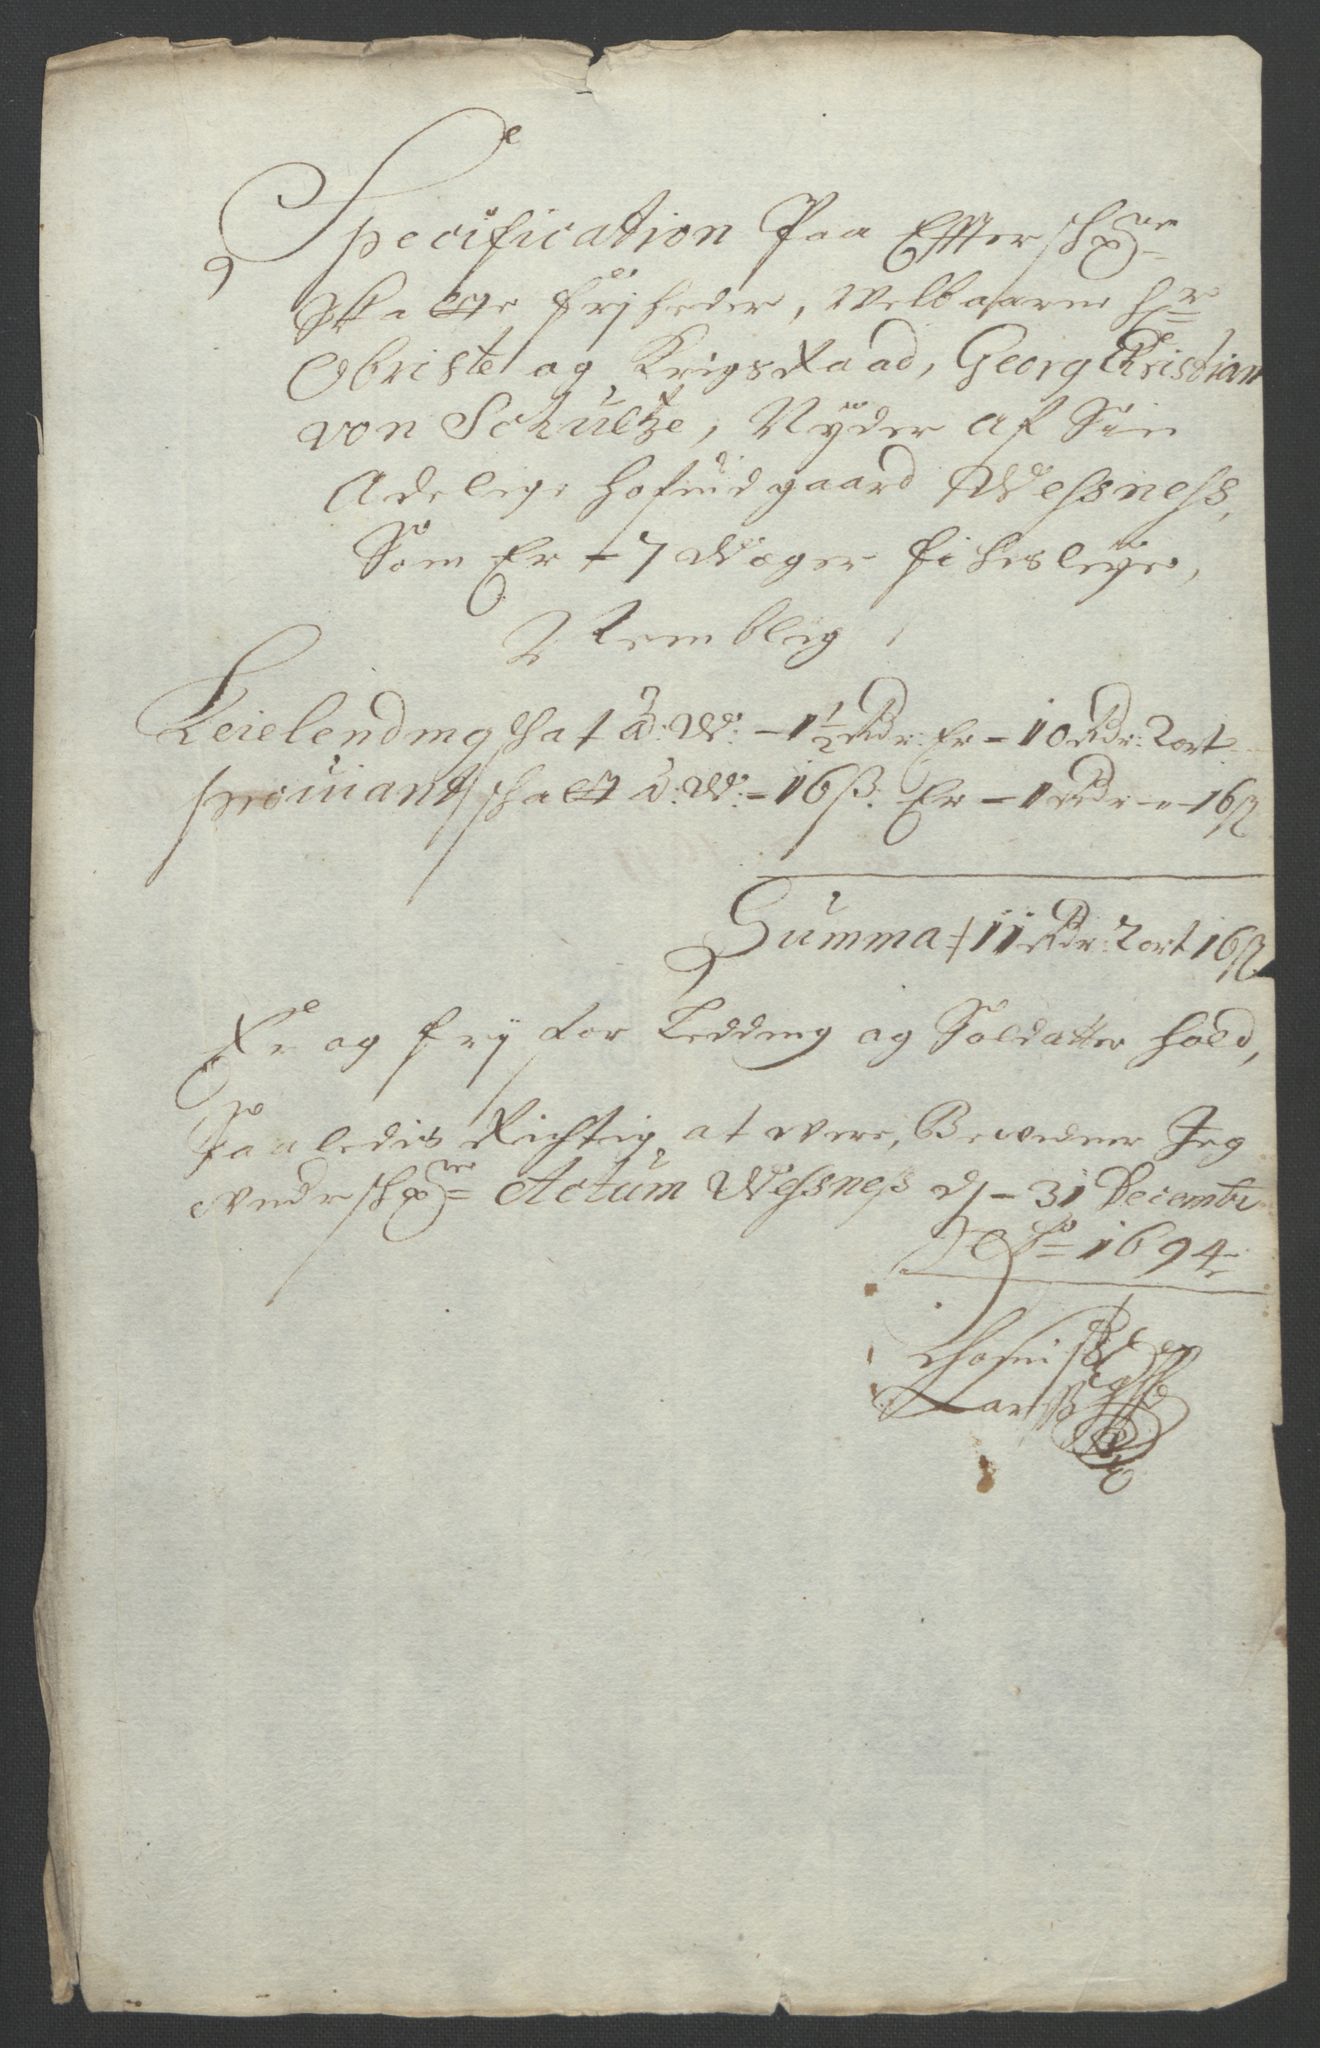 Specification Paa Effterschr:ne
Skatte frijheder, Welbaarne Hr
Obriste og Krigs Raad, Georg Christian
von Schultze, Nÿder af Sin
Adelige hofuidgaard Wessness,
Som Er - 7 Woger fiskesleÿe,
Nemblig
Leielending ska t â: W: - 1½ Rdr: Er - 10 Rdr: 2 ort -
Prouiant schatt â: W: - 16 ß: Er - 1 Rdr - " - 16 ß
Summa 11 Rdr: 2 ort 16 ß
Er og frij for Ledding og Soldatter hold,
Saaledis Richtig at were, Bevidner Jeg
Vnderschr:ne Actum Wessness d - 31 Decembr
Ao 1694